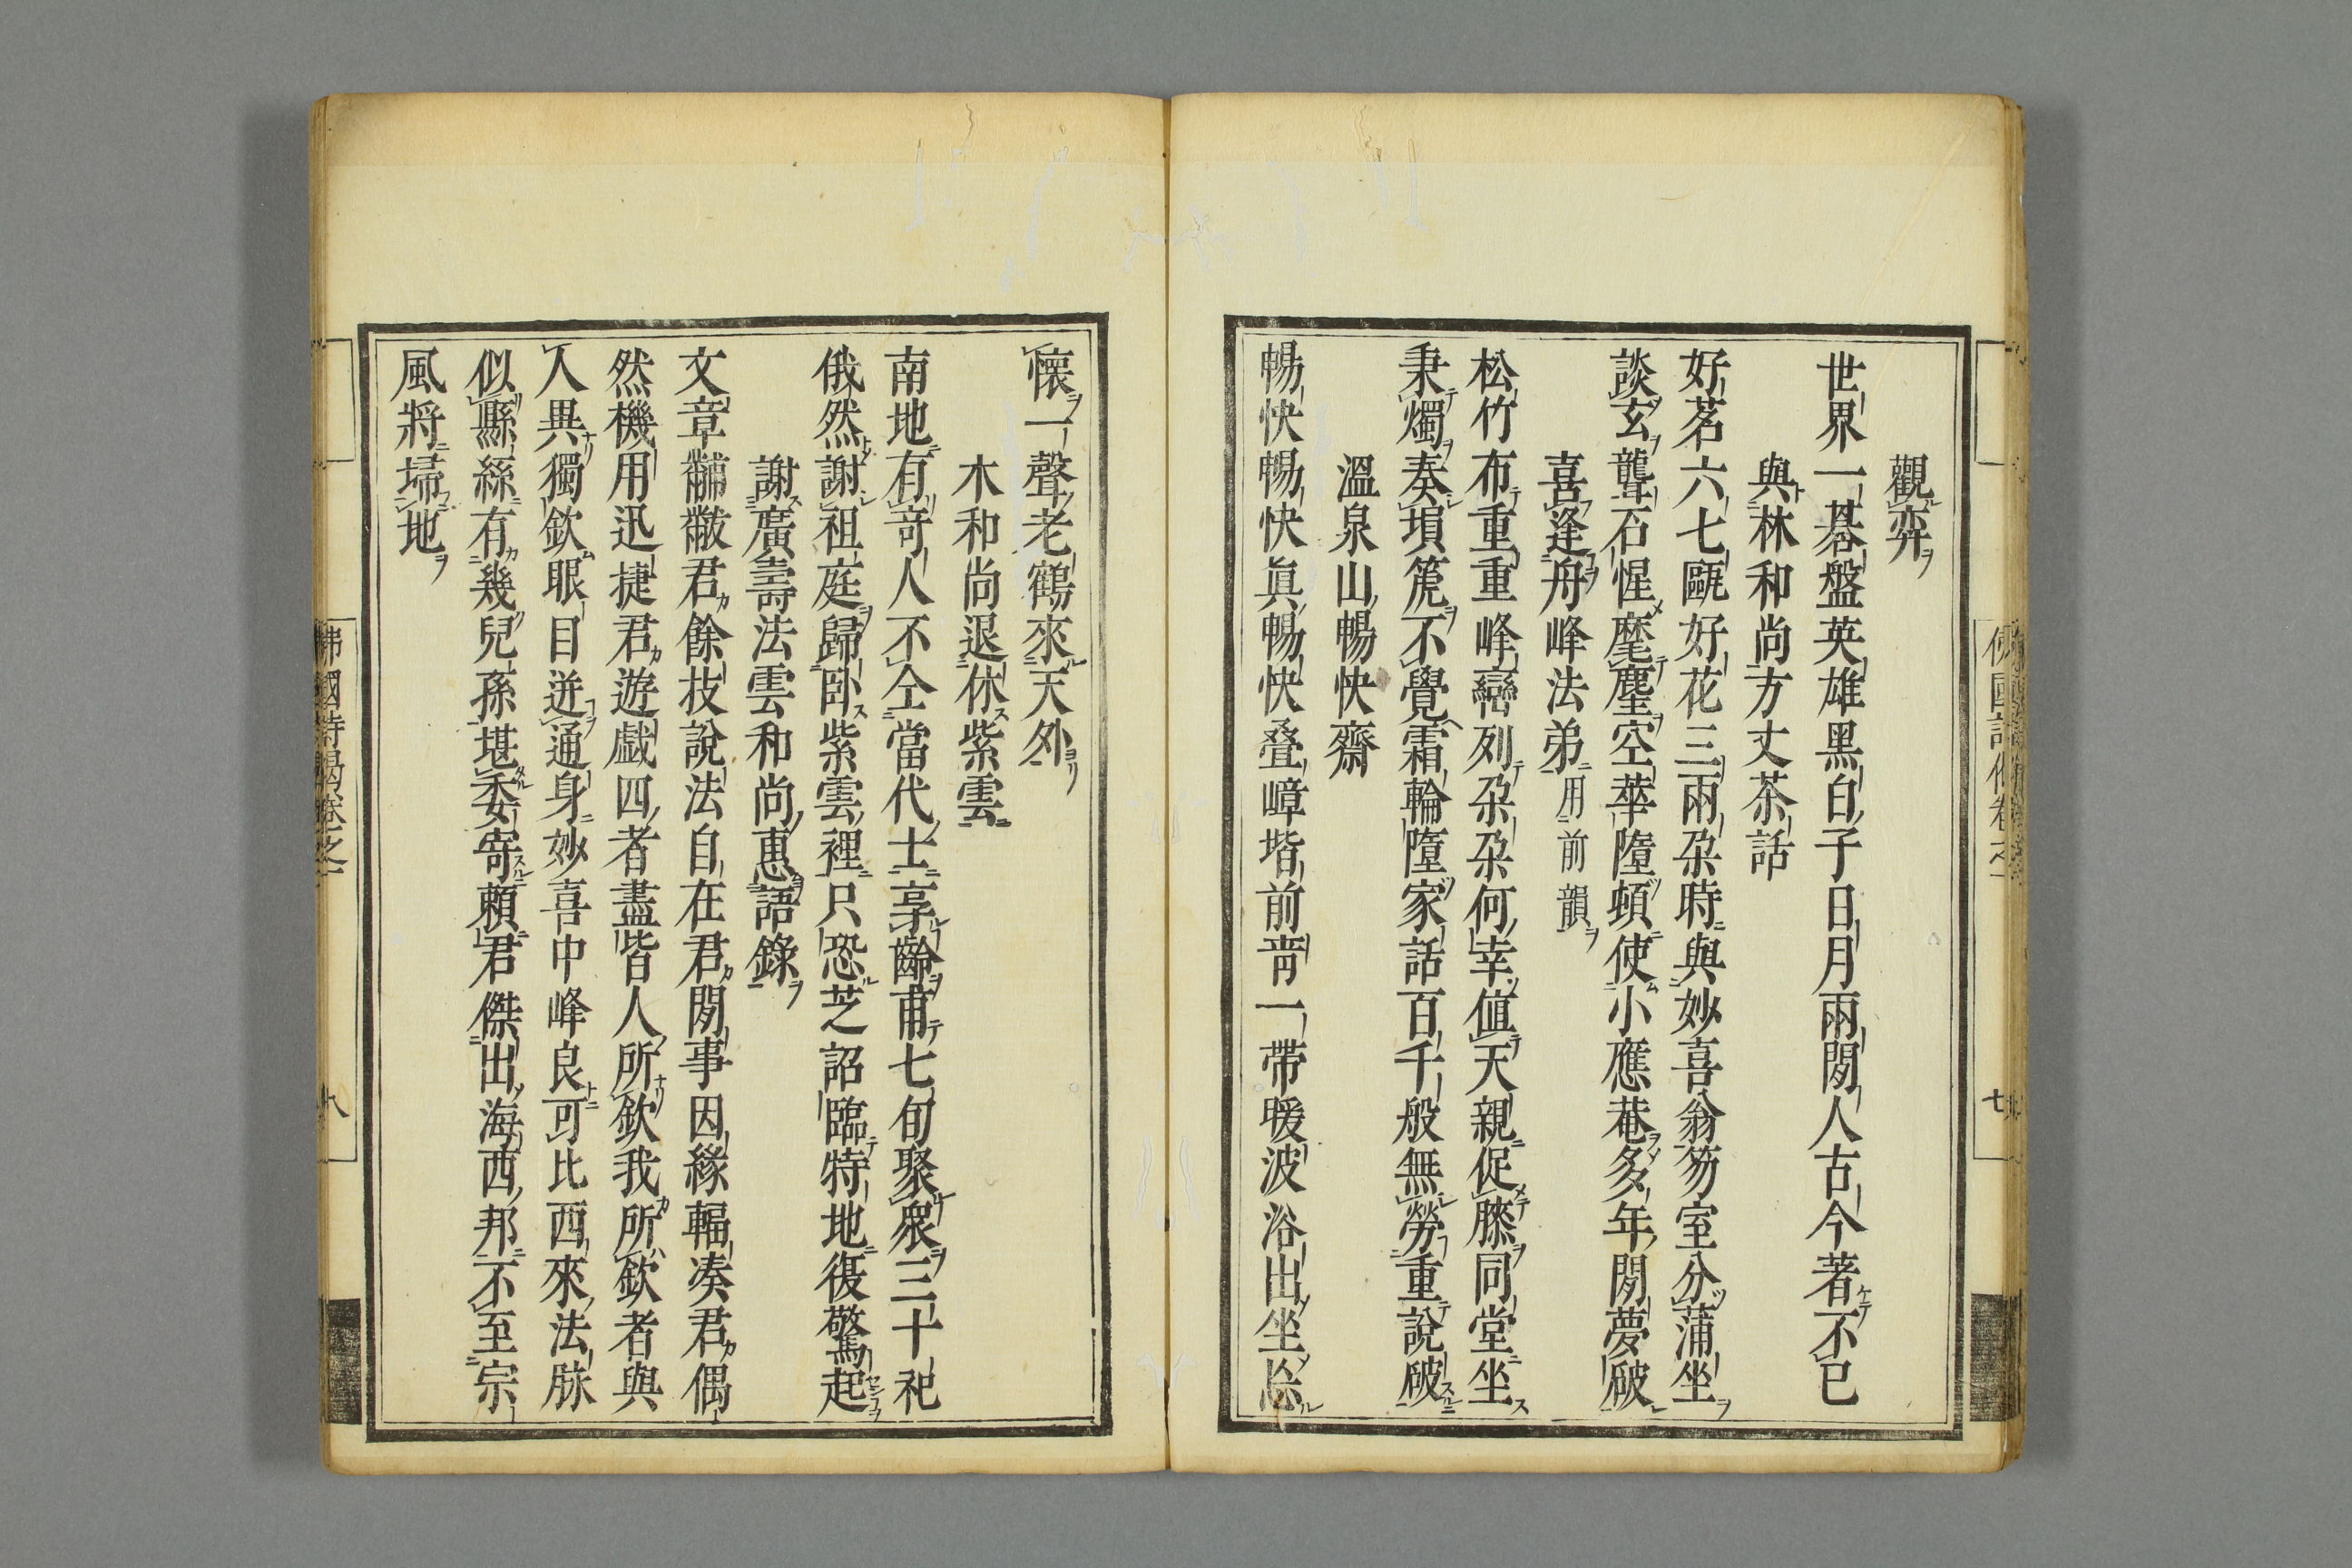 觀弈
世界一碁盤英雄黑白子日月兩閒人古今著不已
與林和尚方丈茶話
好茗六七甌好花三兩朶時與妙喜翁笏室分蒲坐
談玄聾石惺麾麈空華墮頓使小應菴多年閒夢破
喜逢舟峰法弟用前韻
松竹布重重峰巒列朶朶何幸値天親促膝同堂坐
秉燭奏塤箎不覺霜輪墮家話百千般無勞重說破
溫泉山暢快齋
暢快暢快眞暢快叠嶂堦前靑一帶暖波浴出坐
懷一聲老鶴來天外
木和尚退休紫雲
南地有竒人不仝當代士享齡甫七旬聚衆三十祀
俄然謝祖庭歸卧紫雲裡只恐芝詔臨特地復驚起
謝廣壽法雲和尚惠語錄
文章黼黻君餘技說法自在君閒事因緣輻凑君偶
然機用迅捷君遊戯四者盡皆人所欽我所欽者與
人異獨欽眼目迸通身妙喜中峰良可比西來法脉
似縣絲有幾兒孫堪委寄賴君傑出海西邦不至宗
風將埽地
佛國詩偈卷之一
七
佛國詩偈卷之一
八